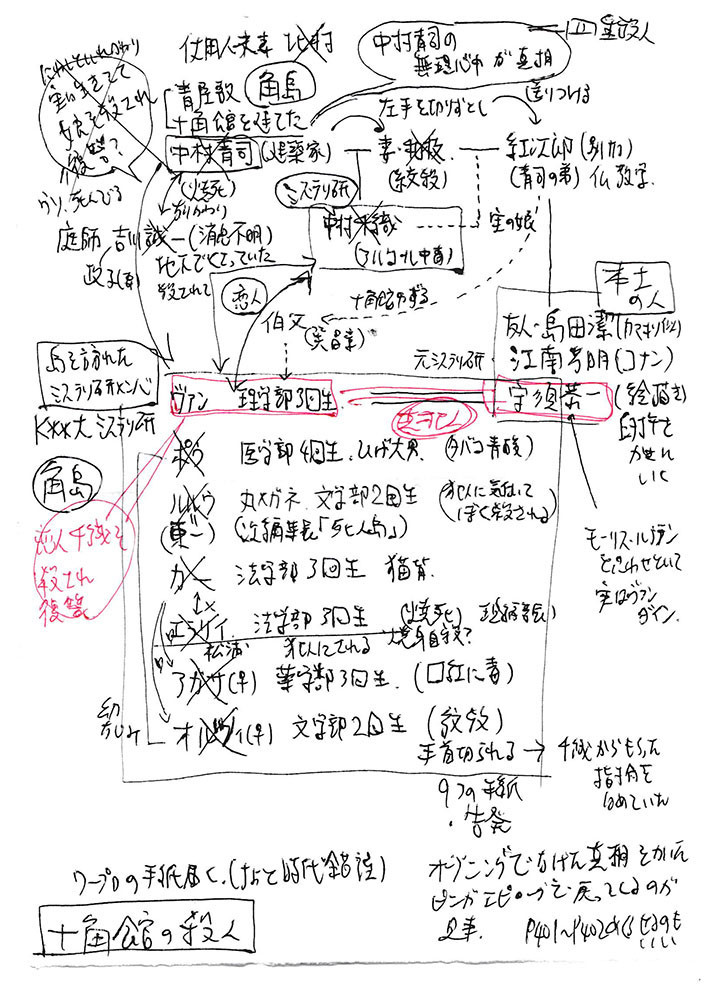 四重殺人
使用人夫妻 北村
中村青司の
無理心中が真相
実は生きてて
復讐?
角島
青屋敷
十角館を建てた
左手を切りおとし
送りつける
中村青司(建築家)
妻・和枝
(絞殺)
紅次郎(別力)
(青司の弟)仏教学
(焼死)
ミステリ研
中村千織
(アルコール中毒)
実の娘
庭師 吉川誠一(消息不明)
政子(妻)
地下でくさっていた
殺されて
恋人
伯父
本土
の人
友人・島田潔
元ミステリ研
江南孝明(コナン)
島を訪れた
ミステリ研メンバ
K×××大 ミステリ研
ヴァン 理学部3回生
守須恭一(絵描き)
真犯人
ポウ 医学部4回生、ひげ大男、(タバコ青酸)
角島
ルルウ 丸メガネ、文学部2回生
(犯人に気づいて
(東一)(次編集長「死人島」)
恋人千織を
殺され
復讐
カー 法学部3回生 猫背
モーリス・ルブラン
と思わせといて
実はヴァン
ダイン。
エラリイ 法学部3回生 (焼死)
松浦 犯人にされる 焼身自殺?
アガサ(♀) 薬学部3回生、(口紅に毒)
オルツィ(♀) 文学部2回生 (絞殺)
手首切られる → 千織からもらった
指輪を
はめていた
9つの手紙
・告発
ワープロの手紙届く、(ちょと時代錯誤)
オープニングでなげた真相をかいた
ビンがエピローグで戻ってくるのが
見事。
いい
十角館の殺人